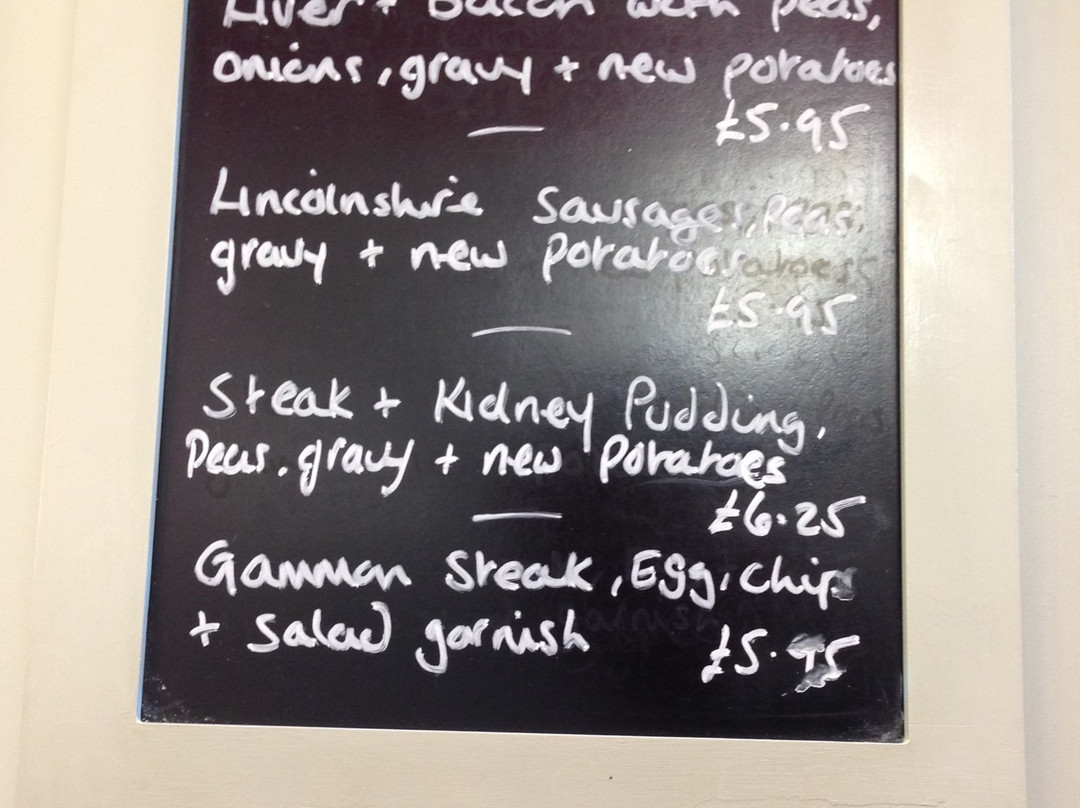 Liver + Bacon with peas,
onions, gravy + new potatoes
£5.95
Lincolnshire Sausages, Peas,
gravy + new potatoes
£5.95
Steak + Kidney Pudding,
Peas, gravy + new Potatoes
£6.25
Gammon Steak, Egg, Chips
+ Salad garnish
£5.95